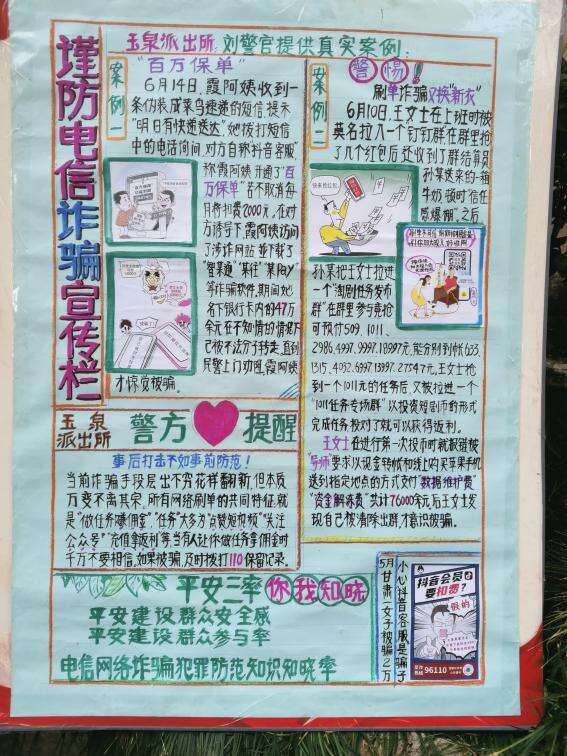 谨防电信诈骗宣传栏
玉泉派出所:刘警官提供真实案例:
案例一
"百万保单"
6月14日,霞阿姨收到一
条伪装成菜鸟速递的短信,提示
"明日有快递送达"她拨打短信
中的电话询问,对方自称抖音客服
称霞阿姨开通了"百
万保单"若不取消每
月将扣费2000元,在对
方诱导下霞阿姨访问
了涉诈网站并下载了
等诈骗软件,期间她
名下银行卡内的47万
余元在不知情的情况下
已被不法分子转走,直到
民警上门劝阻,霞阿姨
才惊觉被骗。
案例二
警惕!!
刷单诈骗又换"新衣"
6月10日,王女士在上班时被
莫名拉入一个钉钉群,在群里抢
了几个红包后还收到了群结算员
孙某送来的一箱
牛奶,顿时"信任
感爆棚"。之后
快来抢红包
孙某把王女士拉进
一个"淘剧任务发布
群"在群里参与竞抢
可预付509、1011、
2986、4997、9997、18997元,能分别到帐623、
1315、4032、6997、13997、27547元,王女士抢
到一个1011元的任务后,又被拉进一个
"1011任务专场群"以投资短剧币的形式
完成任务投对了就可以获得返利。
王女士在进行第一次投币时就报错被
"导师"要求以现金转帐和线上购买苹果手机
送到指定地点的方式支付"数据维护费"
"资金解冻费"共计76000余元,后王女士发
现自己被清除出群,才意识被骗。
玉泉
派出所
警方
提醒
事后打击不如事前防范!
当前诈骗手段层出不穷花样翻新,但本质
万变不离其宗,所有网络刷单的共同特征,就
是"做任务赚佣金""任务"大多为"点赞短视频""关注
公众号""充值拿返利"等,当有人让你做任务拿佣金时
千万不要相信,如果被骗,及时拨打110保留记录。
平安三率你我知晓
平安建设群众安全感
平安建设群众参与率
电信网络诈骗犯罪防范知识知晓率
小心抖音客服是骗子
5月甘肃一女子被骗2万
抖音会员
要扣费?
假的
96110